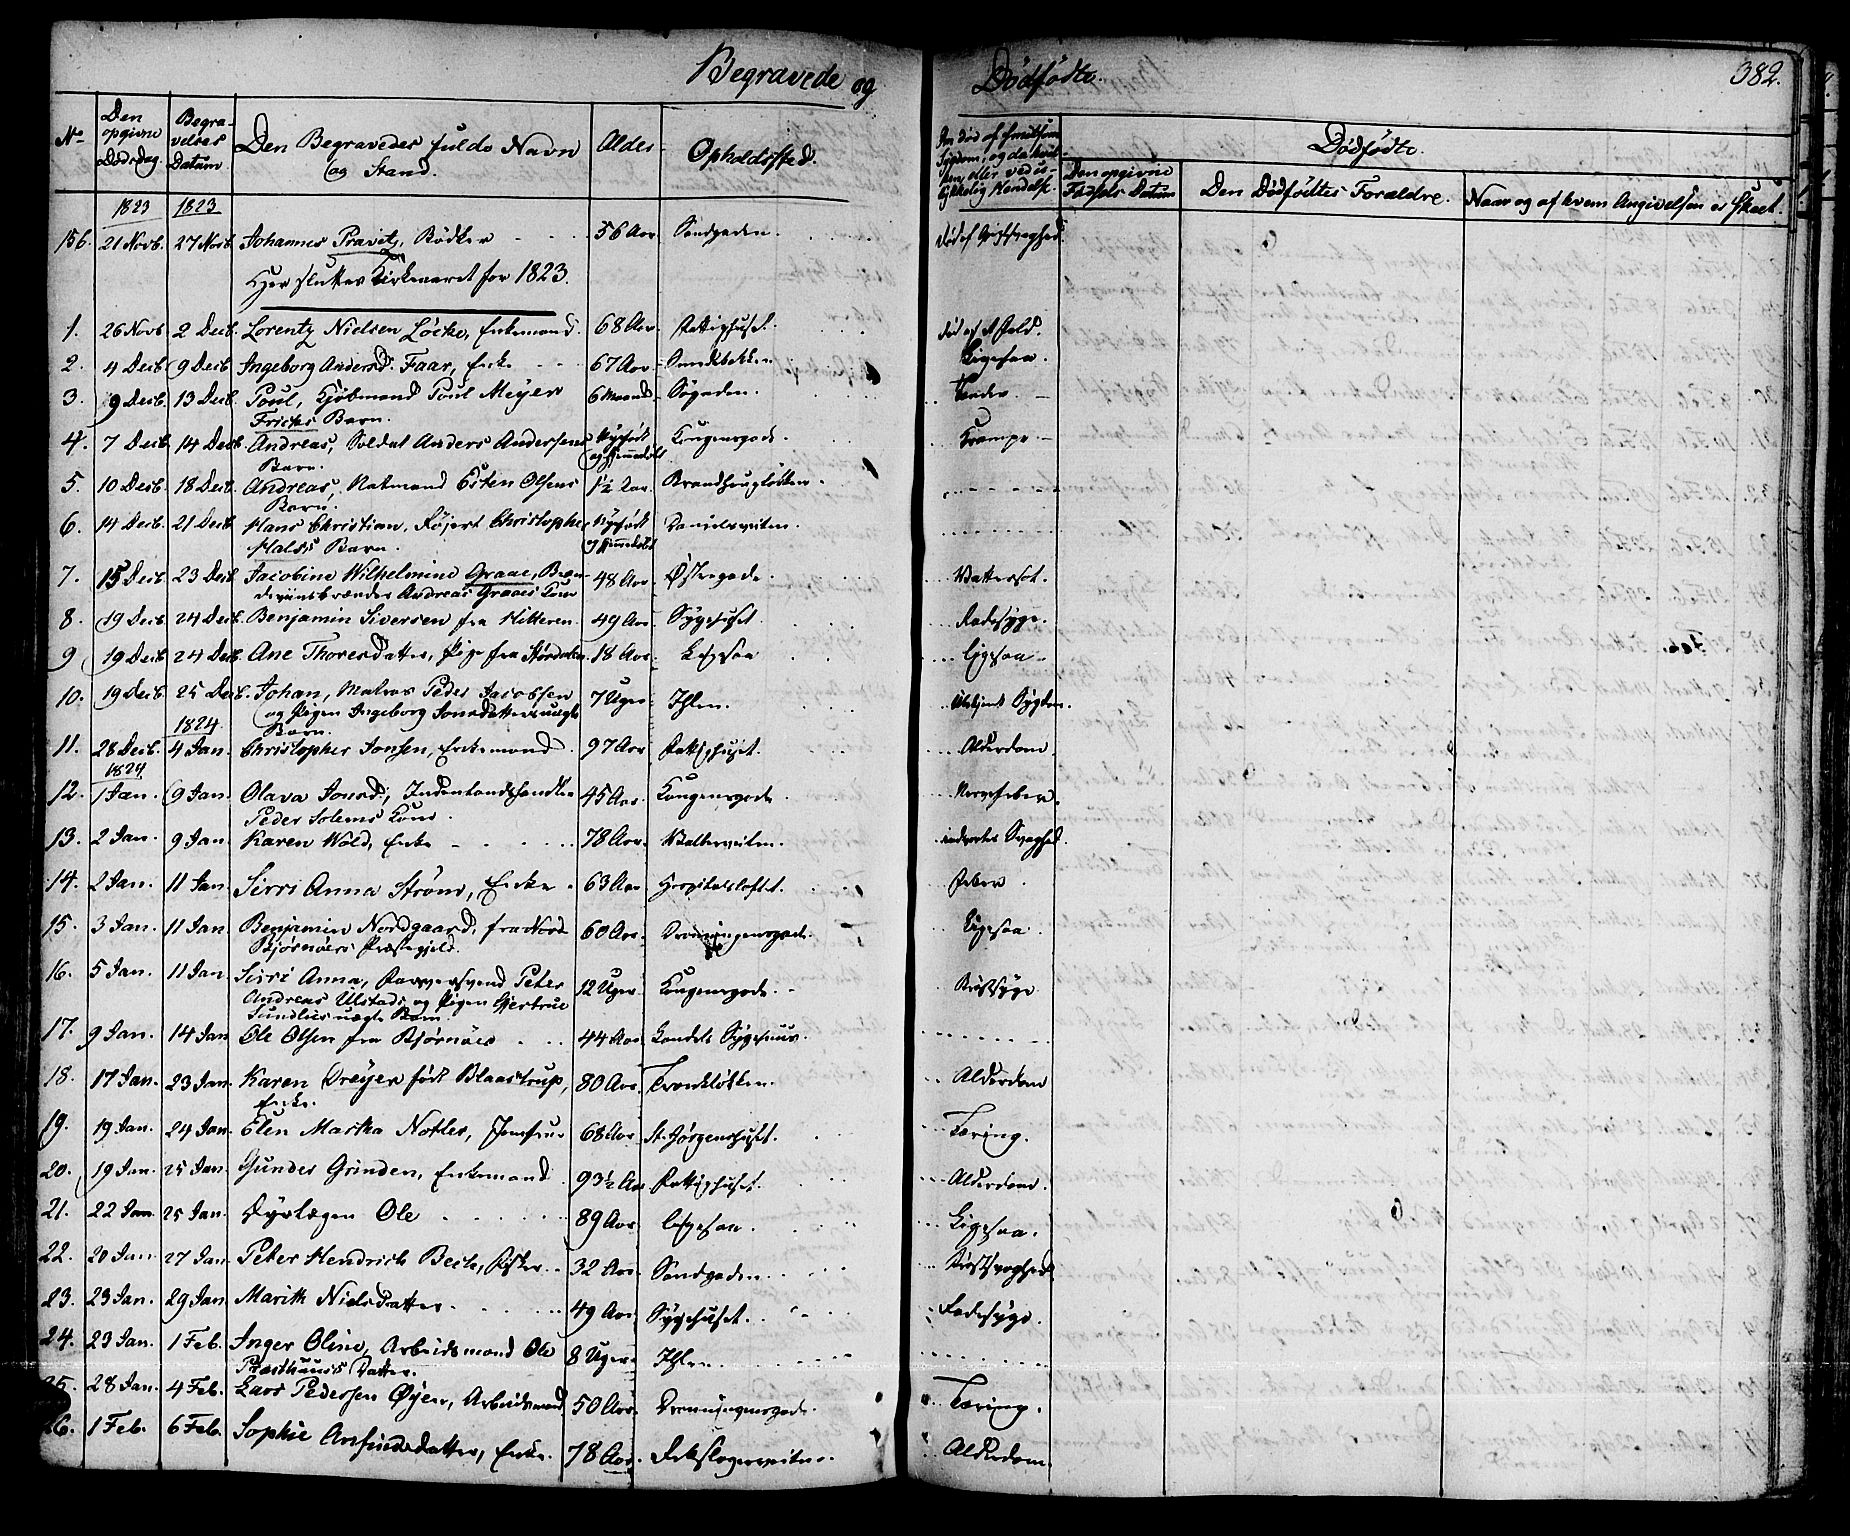 Begravede og Dödfödte.
382.
No
Den opgivne Dødsdag.
Begravelses Datum
Den Begravedes fulde Navn og Stand.
Alder
Opholdssted.
Dödfödte.
Den opgivne Fødsels Datum
Den Dödföltes Forældre.
Naar og af hvem Angivelsen er skeet.
1823 1823
156. 21 Novb. 27 Novb. Johannes Pravitz, Bödker 56 Aar Sandgaden.
Her slutter Kirkeaaret for 1823.
1. 26 Novb 2 Decb. Lorentz Nielsen Löcke, Enkemand. 68 Aar Fattighuset.
2. 4 Decb 9 Decb. Ingeborg Andersd. Faar, Enke 67 Aar Sandbakken Ligesaa.
3. 9 Decb. 13 Decb. Poul, Kjöbmand Poul Meyer 6 Maaned Søgaden.
Frichs Barn.
4. 7 Decb 14 Decb. Andreas, Soldat Anders Andersens Nyfödt Kongensgade. Krampe
Barn. og hjemmedöbt
5. 10 Decb. 18 Decb. Andreas, Natmand Esten Olsens 1½ Aar.
Barn.
6. 14 Decb. 21 Decb. Hans Christian, Christopher Nyfödt
Barn. og hjemmedöbt
7. 15 Decb 23 Decb. Jacobine Wilhelmine Graae, Bræn- 48 Aar Østregade. Vattersot.
deviinsbrænder Andreas Graaes Kone
8. 19 Decb 24 Decb. Benjamin Siversen fra Hitteren. 49 Aar Sygehuset. Radesyge.
9 19 Decb 24 Decb. Ane Thoresdatter, Pige fra Stordalen 18 Aar Ligesaa ligesaa
10. 19 Decb 25 Decb. Johan, Matros Peder Jacobsen 7 Uger Ihlen. Sygdom.
og Pigen Ingeborg Jonsdatters uægte
1824 Barn.
11. 28 Decb. 4 Jan. Christopher Jonsen, Enkemand 97 Aar Fattighuset. Alderdom.
1824
12. 1 Jan. 9 Jan. Olava Jonsd., Indenlandshandler 45 Aar. Kongensgade Nervefeber.
Peder Solems Kone.
13. 2 Jan. 9 Jan. Karen Wold, Enke 78 Aar. indvortes Svaghed.
14. 2 Jan. 11 Jan. Sirri Anna Ström, Enke 63 Aar Hospitalsloftet. Feber
15. 3 Jan. 11 Jan. Benjamin Nordgaard, fra Nord 60 Aar. Dronningensgade. Ligesaa.
Bjørnøers Præstegjeld.
16. 5 Jan. 11 Jan. Sirri Anna, Peter 12 Uger. Kongensgade. Brÿstsyge
Andreas Ulstads og Pigen Gjertrue
uægte Barn.
17. 9 Jan. 14 Jan Ole Olsen fra Bjørnöer 44 Aar.
18. 17 Jan. 23 Jan. Karen Dreyer født Blaastrup, 80 Aar. Alderdom
Enke.
19. 19 Jan. 24 Jan. Elen Martha Nobler, Jomfrue 68 Aar St. Jörgenshuset. Tæring.
20. 19 Jan 25 Jan. Gunder Grinden, Enkemand 93½ Aar Fattighuset. Alderdom.
21. 22 Jan 25 Jan. Dyrlægen Ole 89 Aar. ligesaa. Ligesaa.
22. 20 Jan 27 Jan. Peter Hendrich Beck, Fisker 32 Aar. Sandgaden Brÿstsvaghed
23. 23 Jan. 29 Jan. Marith Nielsdatter 49 Aar. Sygehuset. Radesyge.
24. 23 Jan. 1 Feb. Inger Oline, Arbeidsmand Ole 8 Uger Ihlen.
Præsthuus's Datter.
25. 28 Jan. 4 Feb. Lars Pedersen Øyen, Arbeidsmand 50 Aar. Dronningensgade. Tæring.
26. 1 Feb. 6 Feb. Sophie Anfindsdatter, Enke. 78 Aar. Alderdom.